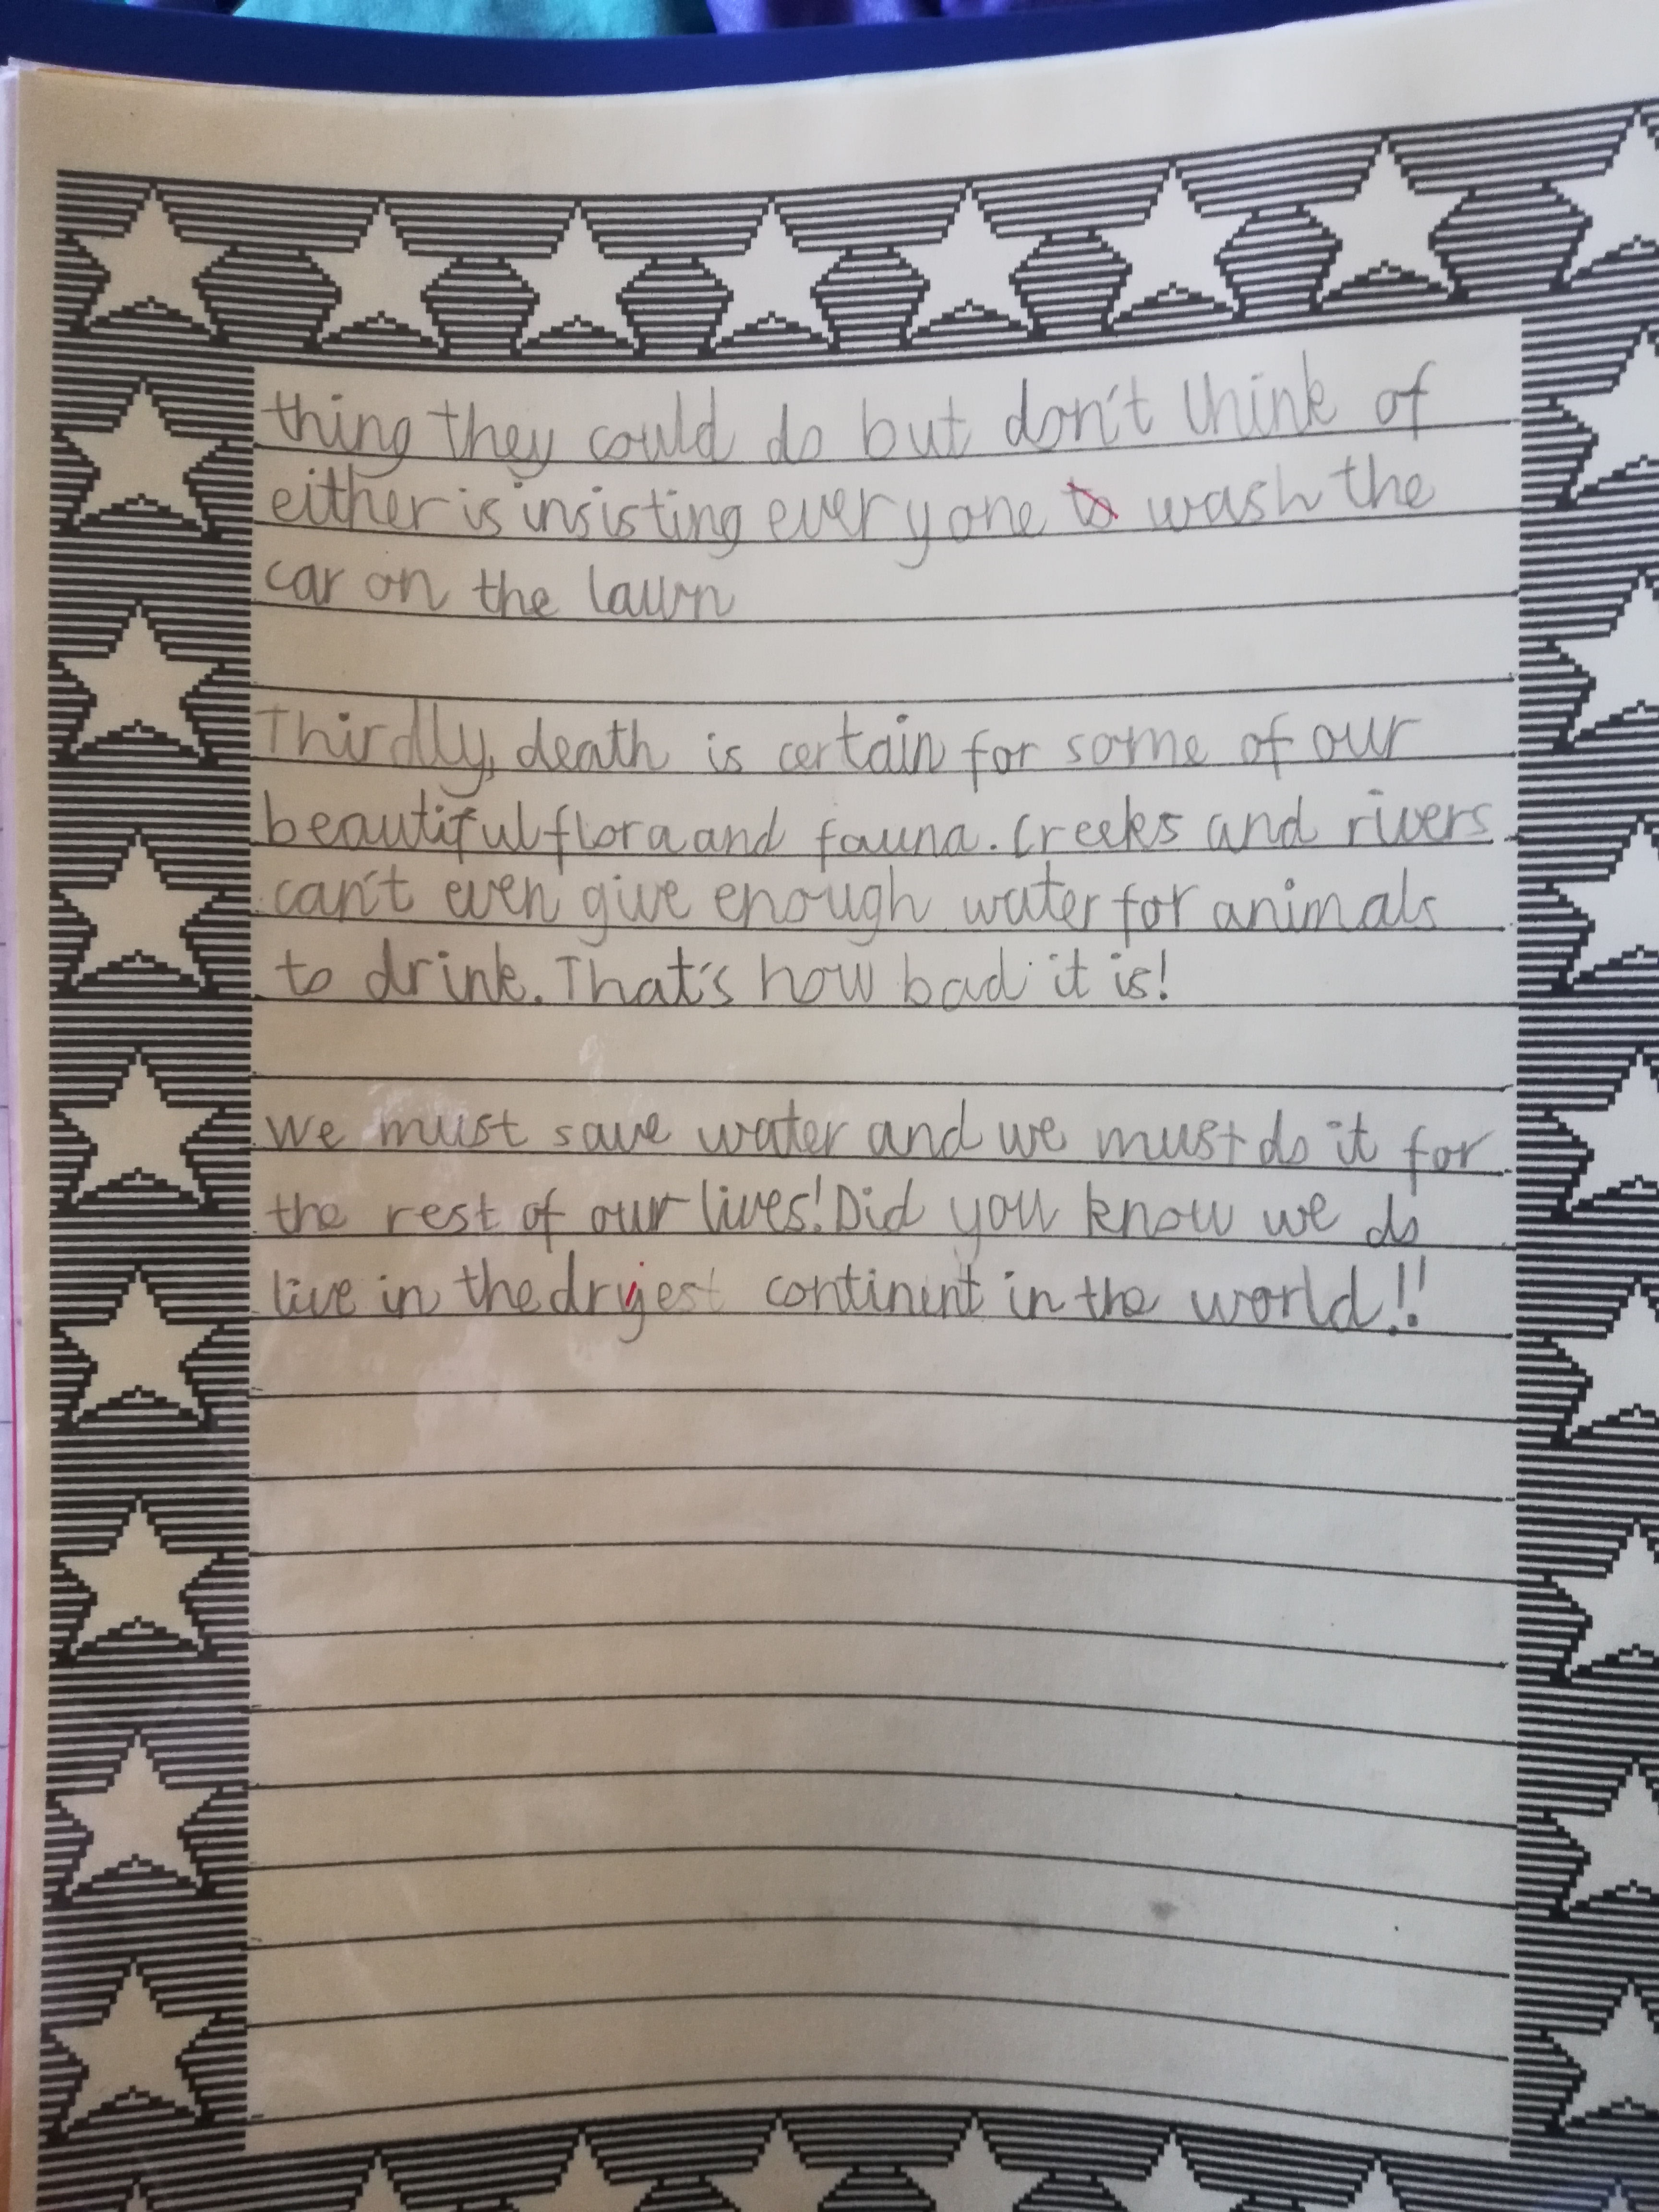 thing they could do but don't think of
either is insisting everyone to wash the
car on the lawn
Thirdly, death is certain for some of our
beautiful flora and fauna. Creeks and rivers
can't even give enough water for animals
to drink. That's how bad it is!
We must save water and we must do it for
the rest of our lives! Did you know we do
live in the dryest continent in the world!!